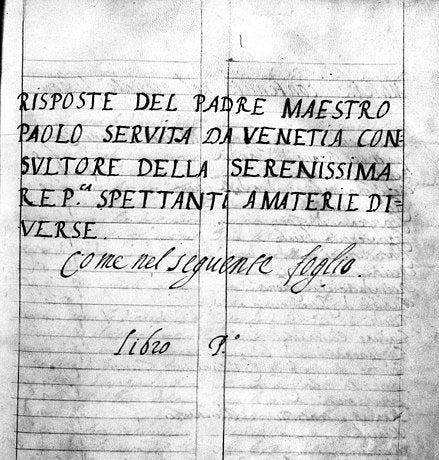 RISPOSTE DEL PADRE MAESTRO
PAOLO SERVITA DA VENETIA CON=
SVLTORE DELLA SERENISSIMA
REP.ᶜᵃ SPETTANTI A MATERIE DI=
VERSE.
Come nel seguente foglio.
Libro P.º